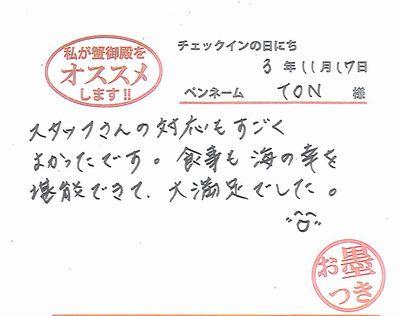 私が蟹御殿を
オススメ
します!!
チェックインの日にち
3年11月17日
ペンネーム TON 様
スタッフさんの対応もすごく
よかったです。食事も海の幸を
堪能できて、大満足でした。
お墨
つき